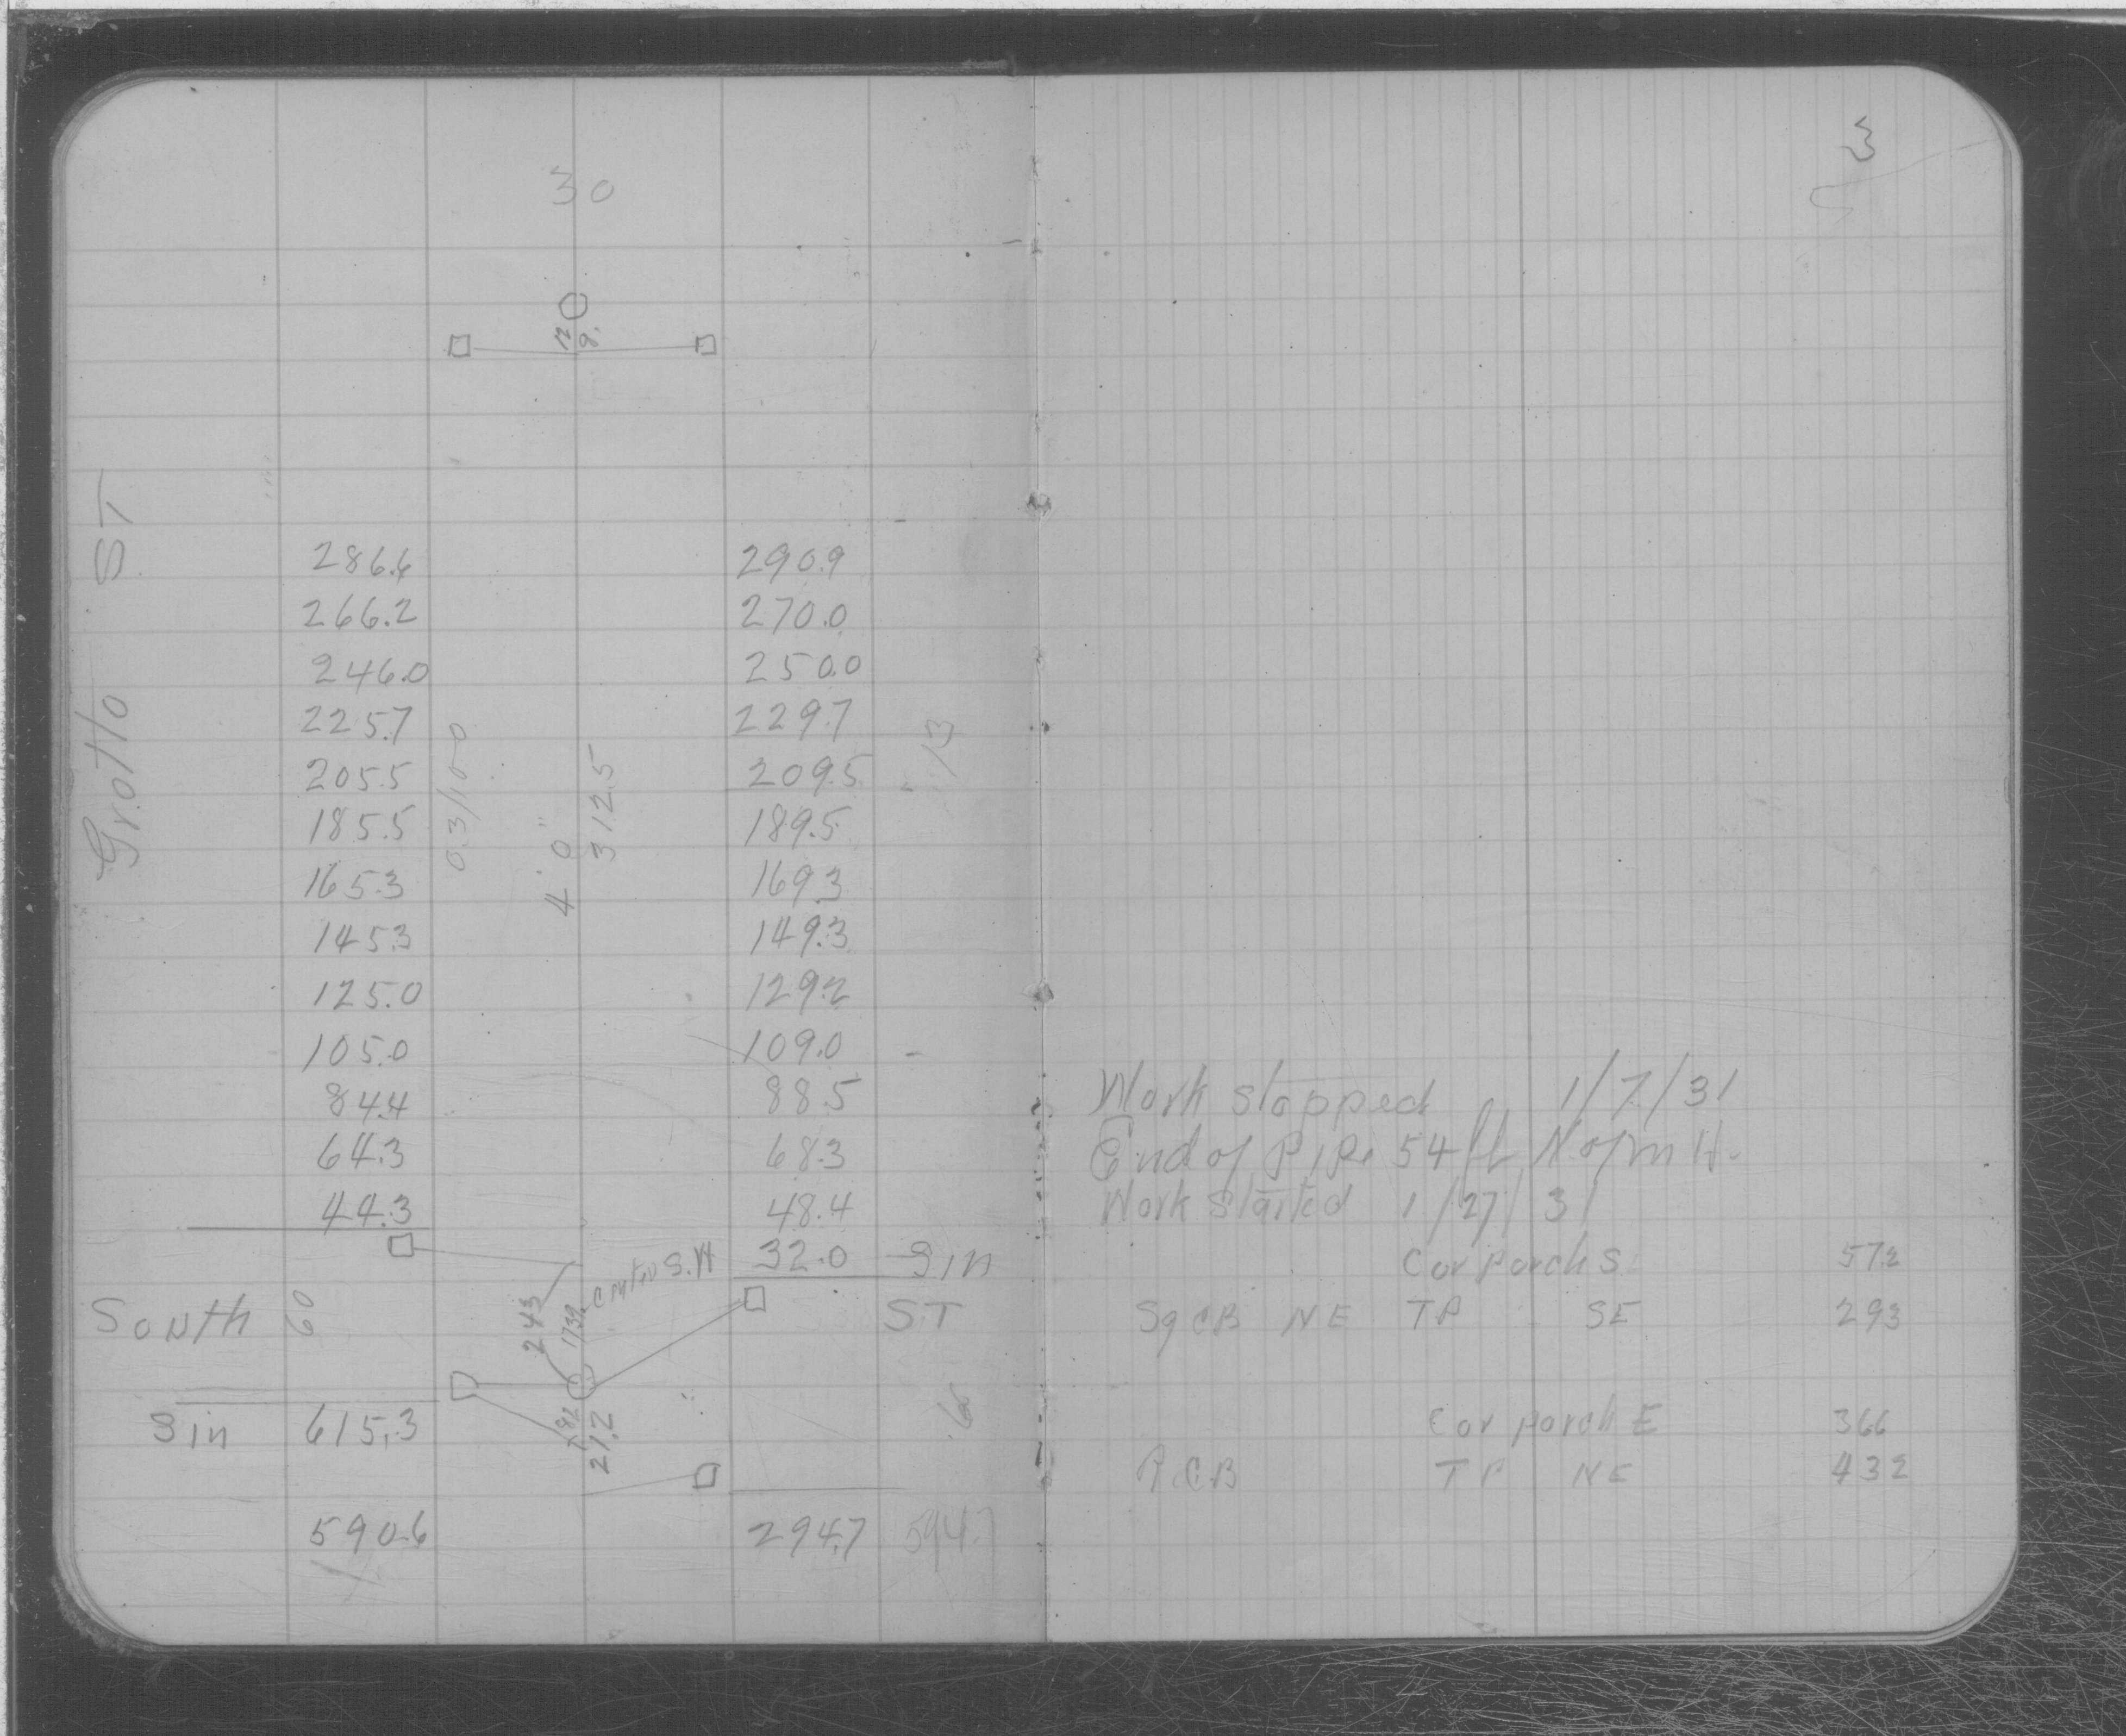 3
30
12
8.
Grotto ST
286.6 290.9
266.2 270.0
246.0 250.0
225.7 229.7
205.5 209.5
185.5 189.5
165.3 169.3
145.3 149.3
125.0 129.2
105.0 109.0
84.4 88.5
64.3 68.3
44.3 48.4
0.3/100
4'0"
312.5
13
32.0 Sin
South 60 ST
243
1739
S.H
Sin 615.3
182
21.2
66
590.6 294.7 594.7
Work stopped 1/7/31
End of Pipe 54 ft N of m H.
Work Started 1/27/31
Cor porch S 572
Sq CB NE TP SE 293
Cor porch E 366
R.C.B TP NE 432